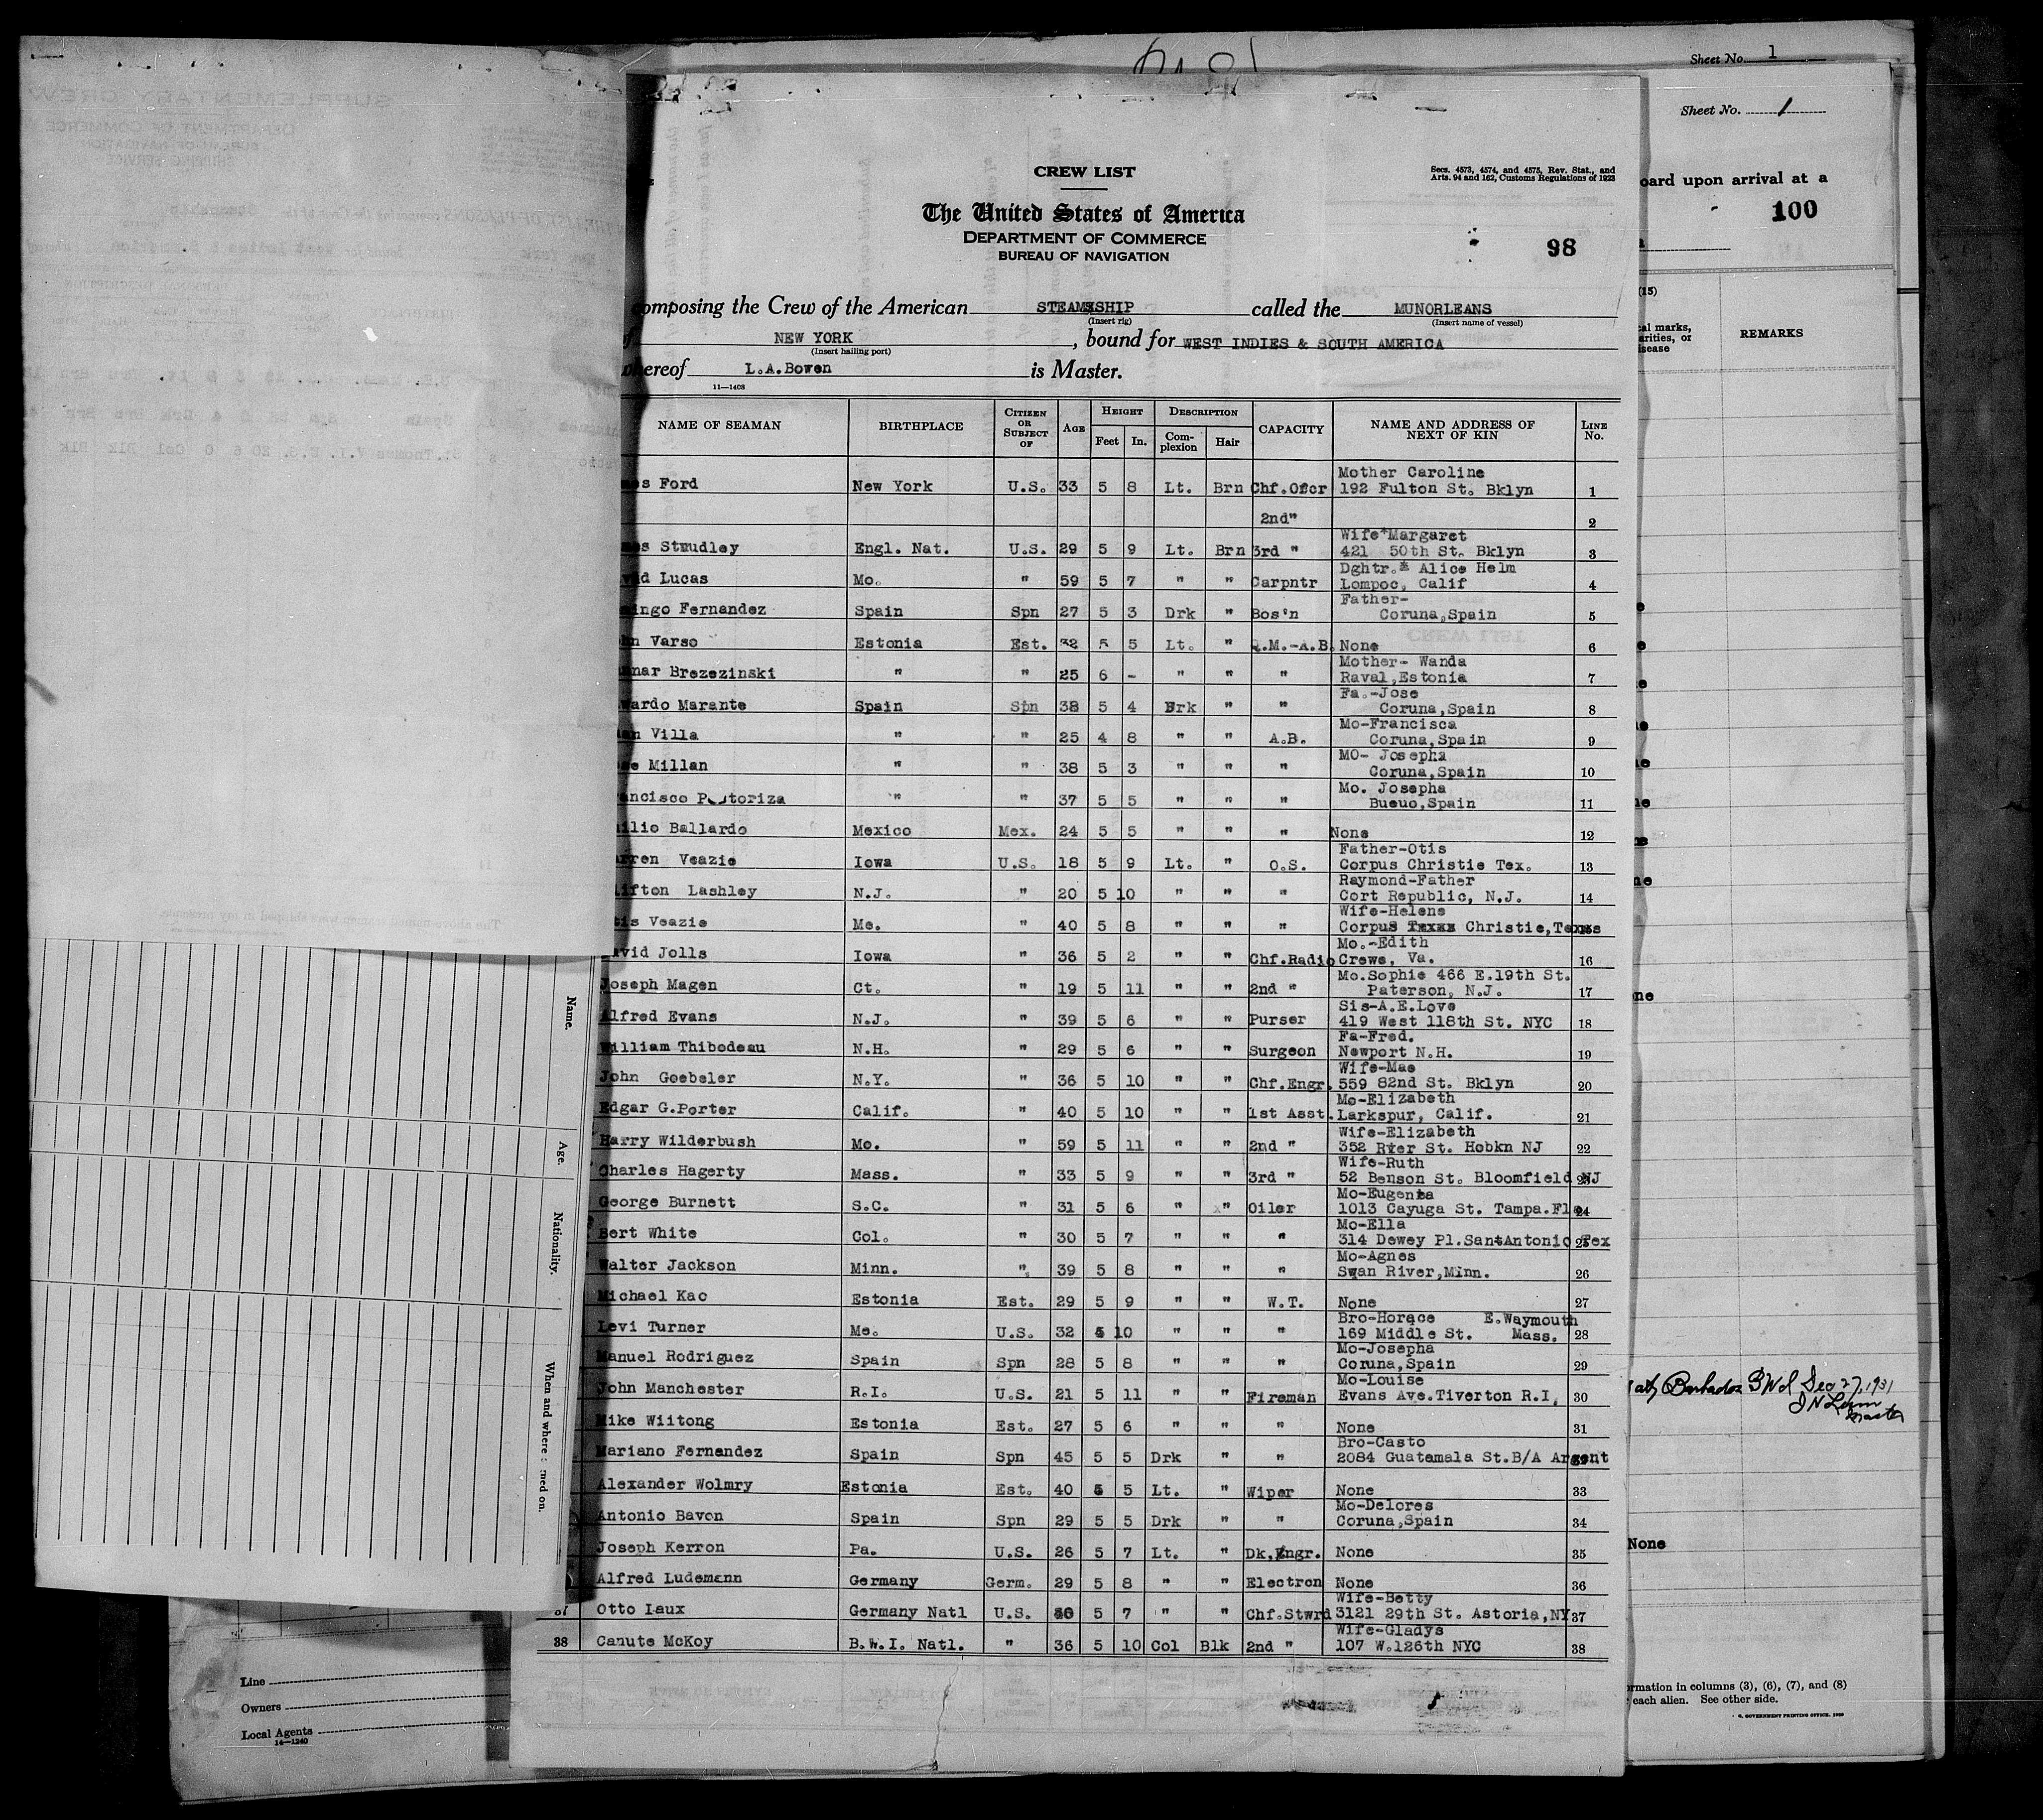 Sheet No. 1
Sheet No. 1
oard upon arrival at a
100
(15)
al marks,
arities, or
isease
REMARKS
CREW LIST
Secs. 4573, 4574, and 4575, Rev. Stat., and
Arts. 94 and 162, Customs Regulations of 1923
The United States of America
DEPARTMENT OF COMMERCE
BUREAU OF NAVIGATION
98
composing the Crew of the American STEAMSHIP called the MUNORLEANS
(Insert rig) (Insert name of vessel)
NEW YORK, bound for WEST INDIES & SOUTH AMERICA
(Insert hailing port)
whereof L.A.Bowen is Master.
11—1408
NAME OF SEAMAN BIRTHPLACE CITIZEN OR SUBJECT OF AGE HEIGHT Feet In. DESCRIPTION Complexion Hair CAPACITY NAME AND ADDRESS OF NEXT OF KIN LINE No.
mes Ford New York U.S. 33 5 8 Lt. Brn Chf.Ofcr Mother Caroline 192 Fulton St. Bklyn 1
2nd" 2
mes Studley Engl. Nat. U.S. 29 5 9 Lt. Brn 3rd " Wife Margaret 421 50th St. Bklyn 3
vid Lucas Mo. " 59 5 7 " " Carpntr Dghtr. Alice Helm Lompoc, Calif 4
mingo Fernandez Spain Spn 27 5 3 Drk " Bos'n Father- Coruna,Spain 5
hn Varso Estonia Est. 32 5 5 Lt. " Q.M.-A.B. None 6
nar Brezezinski " " 25 6 - " " " Mother- Wanda Raval,Estonia 7
wardo Marante Spain Spn 38 5 4 Drk " " Fa.-Jose Coruna,Spain 8
an Villa " " 25 4 8 " " A.B. Mo-Francisca Coruna,Spain 9
se Millan " " 38 5 3 " " " MO- Josepha Coruna,Spain 10
ancisco " " 37 5 5 " " " Mo. Josepha Bueuo,Spain 11
ilio Ballardo Mexico Mex. 24 5 5 " " " None 12
rren Veazie Iowa U.S. 18 5 9 Lt. " O.S. Father-Otis Corpus Christie Tex. 13
lifton Lashley N.J. " 20 5 10 " " " Raymond-Father Cort Republic, N.J. 14
tis Veazie Me. " 40 5 8 " " " Wife-Helene Corpus Texas Christie,Texas
avid Jolls Iowa " 36 5 2 " " Chf.Radio Mo.-Edith Crewe, Va. 16
Joseph Magen Ct. " 19 5 11 " " 2nd " Mo.Sophie 466 E.19th St. Paterson, N.J. 17
Alfred Evans N.J. " 39 5 6 " " Purser Sis-A.E.Love 419 West 118th St. NYC 18
William Thibodeau N.H. " 29 5 6 " " Surgeon Fa-Fred. Newport N.H. 19
John Goebeler N.Y. " 36 5 10 " " Chf.Engr. Wife-Mae 559 82nd St. Bklyn 20
Edgar G.Porter Calif. " 40 5 10 " " 1st Asst. Mo-Elizabeth Larkspur, Calif. 21
Harry Wilderbush Mo. " 59 5 11 " " 2nd " Wife-Elizabeth 352 St. Hobkn NJ 22
Charles Hagerty Mass. " 33 5 9 " " 3rd " Wife-Ruth 52 Benson St. Bloomfield NJ
George Burnett S.C. " 31 5 6 " " Oiler Mo-Eugenia 1013 Cayuga St. Tampa.Fla 24
Bert White Col. " 30 5 7 " " " Mo-Ella 314 Dewey Pl.SantAntonio Tex 25
Walter Jackson Minn. " 39 5 8 " " " Mo-Agnes Swan River,Minn. 26
Michael Kac Estonia Est. 29 5 9 " " W.T. None 27
Levi Turner Me. U.S. 32 5 10 " " " Bro-Horace E.Waymouth 169 Middle St. Mass. 28
Manuel Rodriguez Spain Spn 28 5 8 " " " Mo-Josepha Coruna,Spain 29
John Manchester R.I. U.S. 21 5 11 " " Fireman Mo-Louise Evans Ave.Tiverton R.I. 30
Mike Wiitong Estonia Est. 27 5 6 " " " None 31
Mariano Fernandez Spain Spn 45 5 5 Drk " " Bro-Casto 2084 Guatamala St.B/A Argent
Alexander Wolmry Estonia Est. 40 5 5 Lt. " Wiper None 33
Antonio Bavon Spain Spn 29 5 5 Drk " " Mo-Delores Coruna,Spain 34
Joseph Kerron Pa. U.S. 26 5 7 Lt. " Dk.Engr. None 35
Alfred Ludemann Germany Germ. 29 5 8 " " Electron None 36
37 Otto Laux Germany Natl U.S. 5 7 " " Chf.Stwrd Wife-Betty 3121 29th St. Astoria,NY 37
38 Canute McKoy B.W.I. Natl. " 36 5 10 Col Blk 2nd " Wife-Gladys 107 W.126th NYC 38
Name.
Age.
Nationality.
When and where
ned on.
Line
Owners
Local Agents
14—1240
Barbados BWI Dec 27, 1931
Master
None
ormation in columns (3), (6), (7), and (8)
each alien. See other side.
GOVERNMENT PRINTING OFFICE